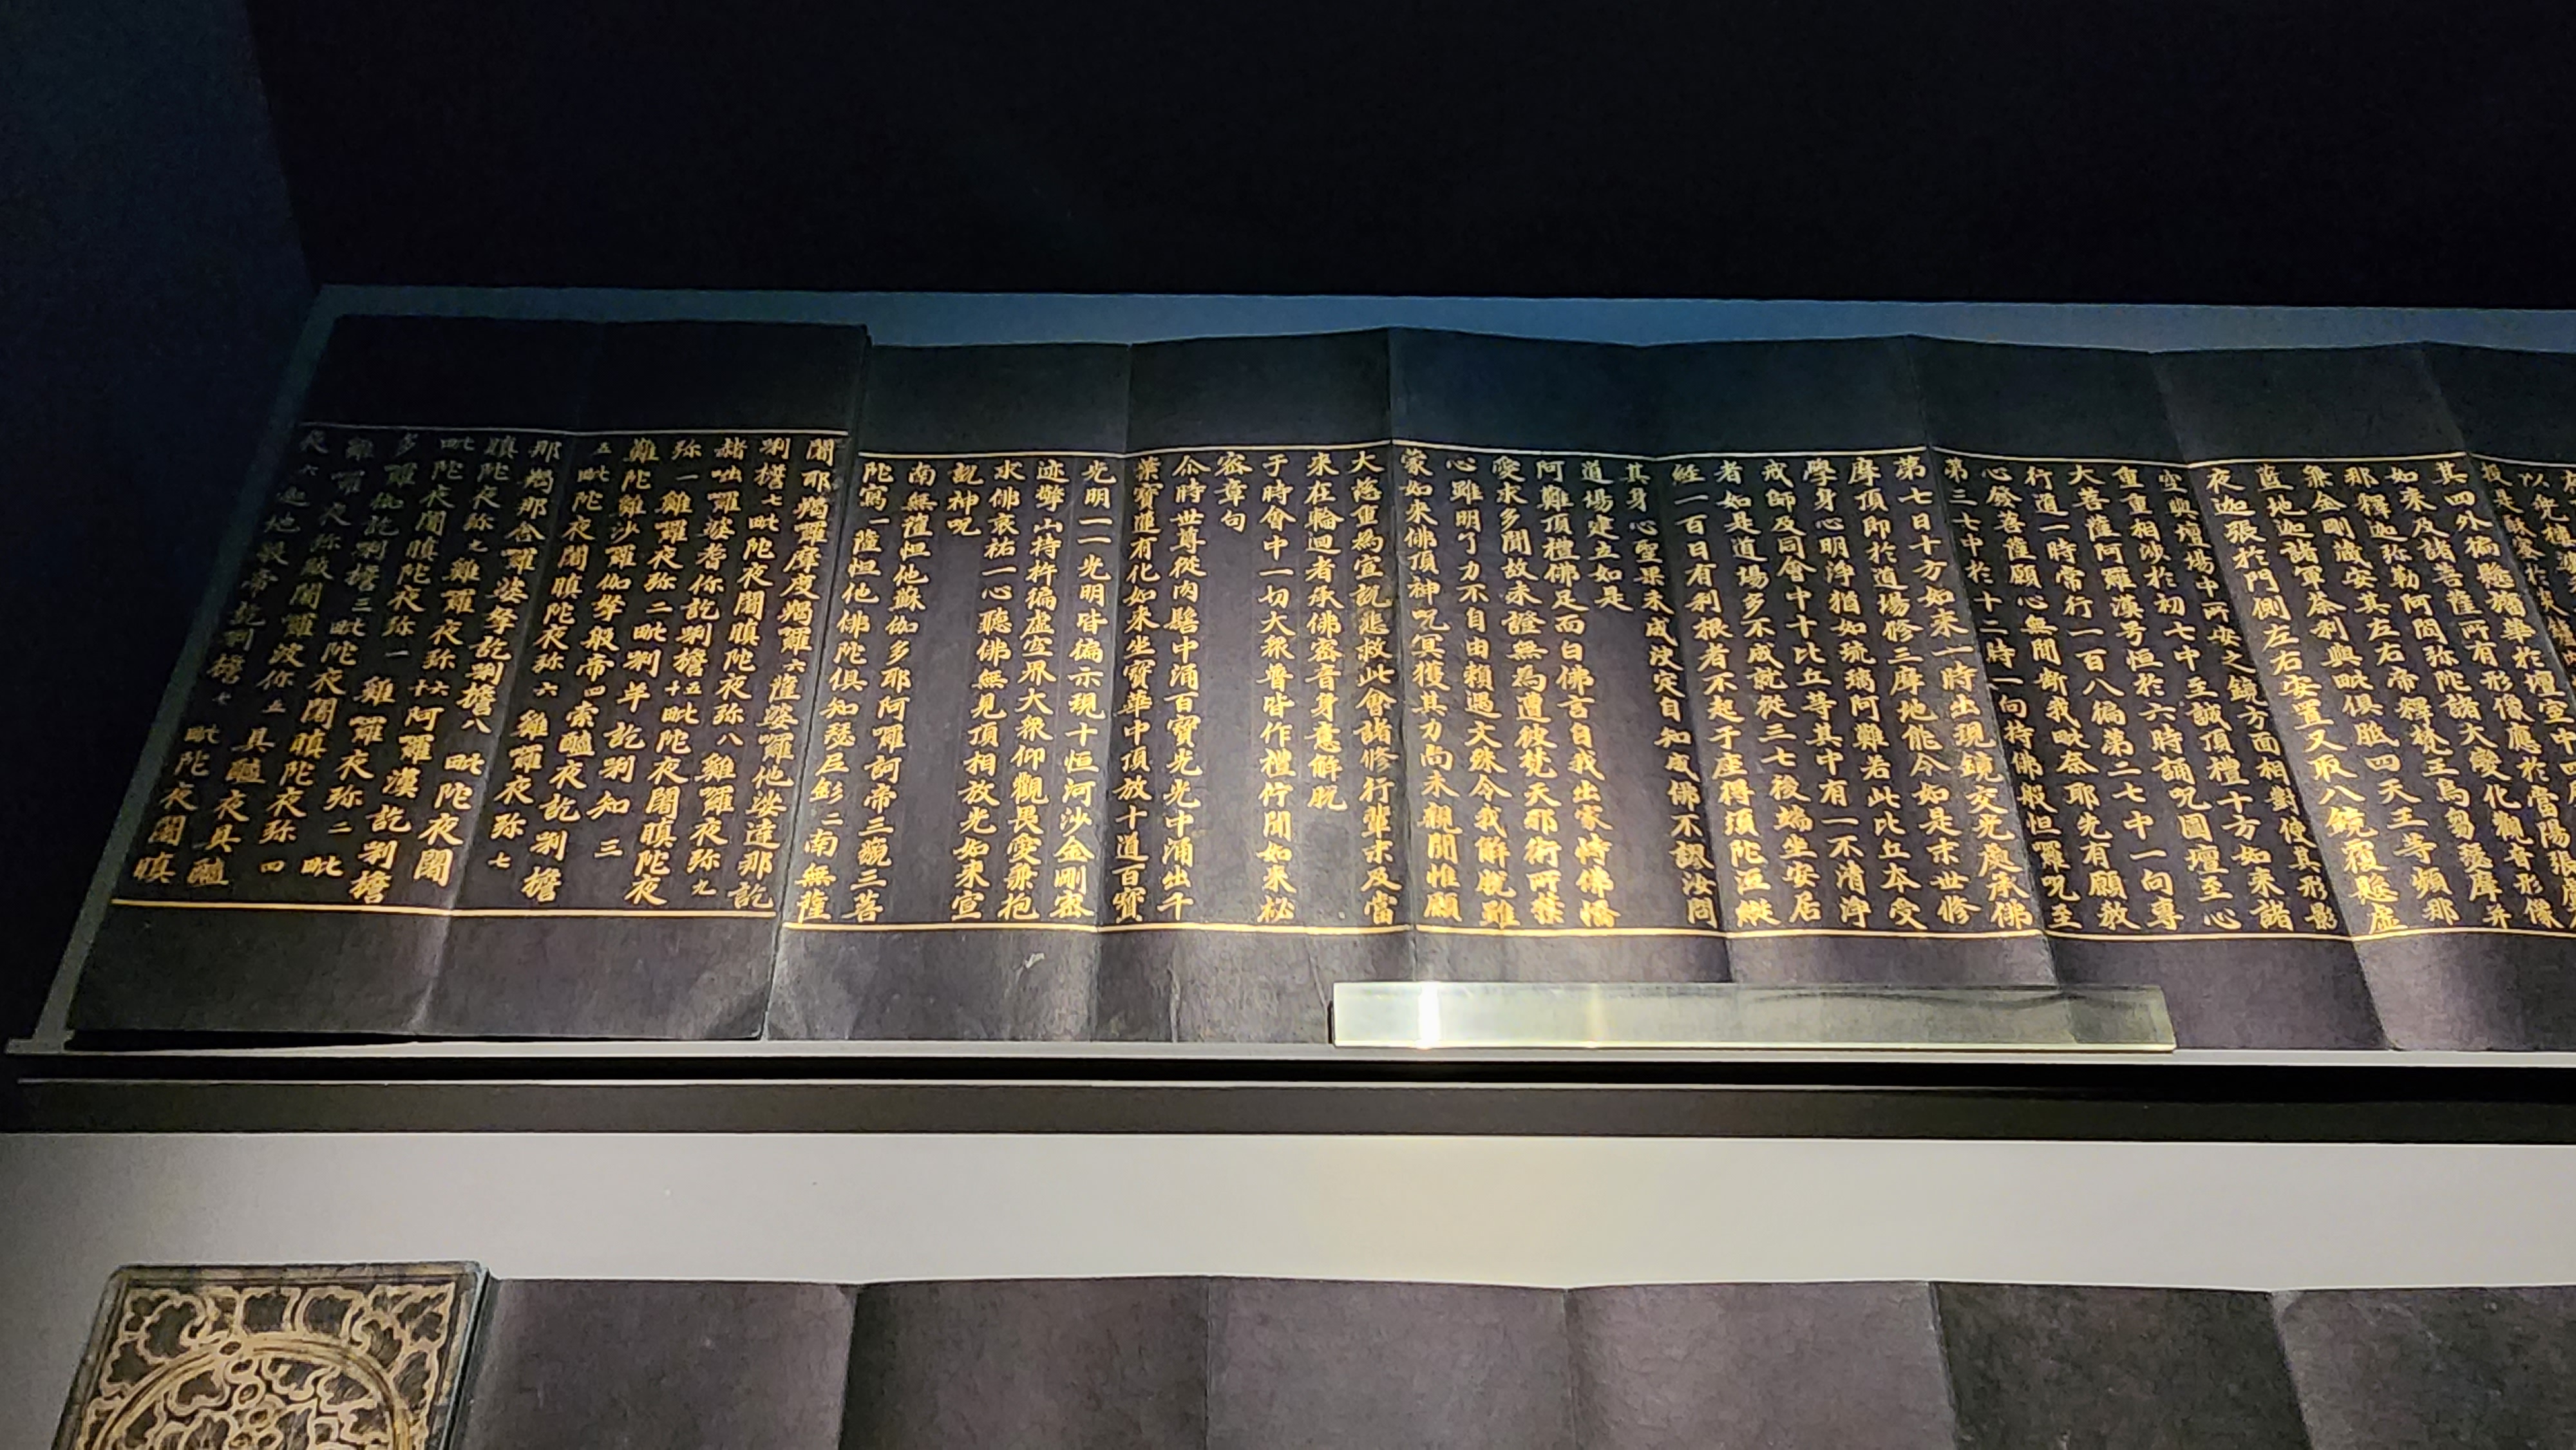 其四外徧懸旛華於壇室中
如來及諸菩薩所有形像應於當陽張
那釋迦弥勒阿閦弥陀諸大變化觀音形像
兼金剛藏安其左右帝釋梵王烏芻瑟摩并
藍地迦諸軍荼利與毗俱胝四天王等頻那
夜迦張於門側左右安置又取八鏡覆懸虛
空與壇場中所安之鏡方面相對使其形影
重重相涉於初七中至誠頂禮十方如來諸
大菩薩阿羅漢号恒於六時誦呪圍壇至心
行道一時常行一百八徧第二七中一向專
心發菩薩願心無間斷我毗奈耶先有願教
第三七中於十二時一向持佛般怛羅呪至
第七日十方如來一時出現鏡交光處承佛
摩頂即於道場修三摩地能令如是末世修
學身心明淨猶如琉璃阿難若此比丘本受
戒師及同會中十比丘等其中有一不清淨
者如是道場多不成就從三七後端坐安居
經一百日有利根者不起于座得須陀洹縱
其身心聖果未成決定自知成佛不謬汝問
道場建立如是
阿難頂禮佛足而白佛言自我出家恃佛憍
愛求多聞故未證無為遭彼梵天邪術所禁
心雖明了力不自由賴遇文殊令我解脫雖
蒙如來佛頂神呪冥獲其力尚未親聞惟願
大慈重為宣說悲救此會諸修行輩末及當
來在輪迴者承佛密音身意解脫
于時會中一切大衆普皆作禮佇聞如來秘
密章句
尒時世尊從肉髻中涌百寶光光中涌出千
葉寶蓮有化如來坐寶華中頂放十道百寶
光明一一光明皆徧示現十恒河沙金剛密
迹擎山持杵徧虛空界大衆仰觀畏愛兼抱
求佛哀祐一心聽佛無見頂相放光如來宣
說神呪
南無薩怛他蘇伽多耶阿囉訶帝三藐三菩
陀寫一薩怛他佛陀俱知瑟尼釤二南無薩
闍耶羯囉摩度羯囉六薩婆囉他娑達那訖
唎檐七毗陀夜闍瞋陀夜弥八雞囉夜弥九
赭咄囉婆耆你訖唎檐五十毗陀夜闍瞋陀夜
弥一雞囉夜弥二毗唎羊訖唎知三
難陀雞沙囉伽拏般帝四索醯夜訖唎檐
五毗陀夜闍瞋陀夜弥六雞囉夜弥七
那羯那舍囉婆拏訖唎檐八毗陀夜闍
瞋陀夜弥九雞囉夜弥六十阿羅漢訖唎檐
毗陀夜闍瞋陀夜弥一雞囉夜弥二毗
多囉伽訖唎檐三毗陀夜闍瞋陀夜弥四
雞囉夜弥跋闍囉波你五具醯夜具醯
夜六迦地般帝訖唎檐七毗陀夜闍瞋